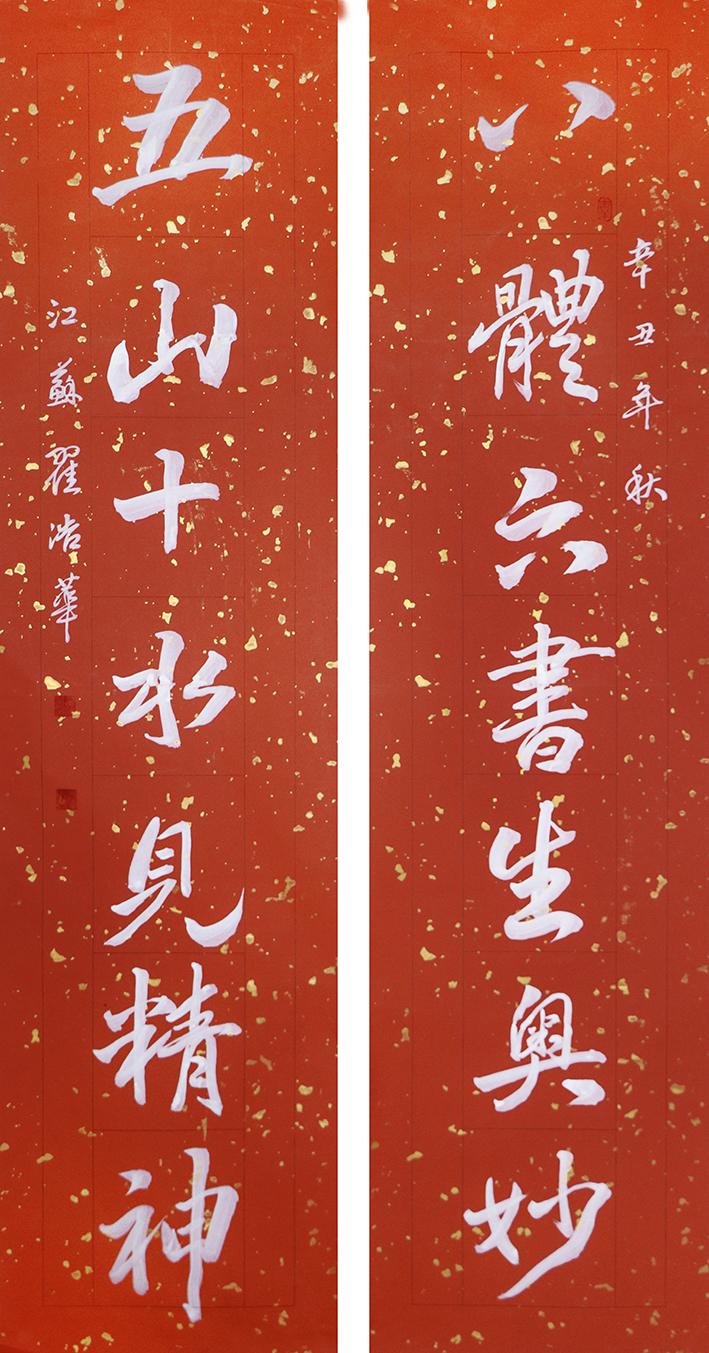 辛丑年秋
八體六書生奧妙
五山十水見精神
江蘇翟浩華